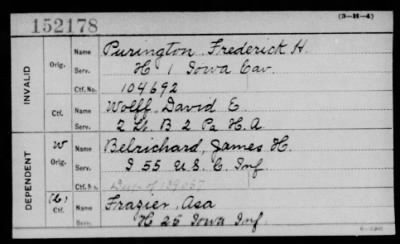 152178
(3-H-4)
INVALID
Orig. Name Purington Frederick H.
Serv. H 1 Iowa Cav.
Ctf. No. 104692
Ctf. Name Wolff, David E.
Serv. 2 Lt. B 2 Pa H. A
DEPENDENT
W Orig. Name Belrichard, James H.
Serv. I 55 U.S.C. Inf.
Ctf. No.
Ctf. Name Frazier, Asa
Serv. H 25 Iowa Inf.